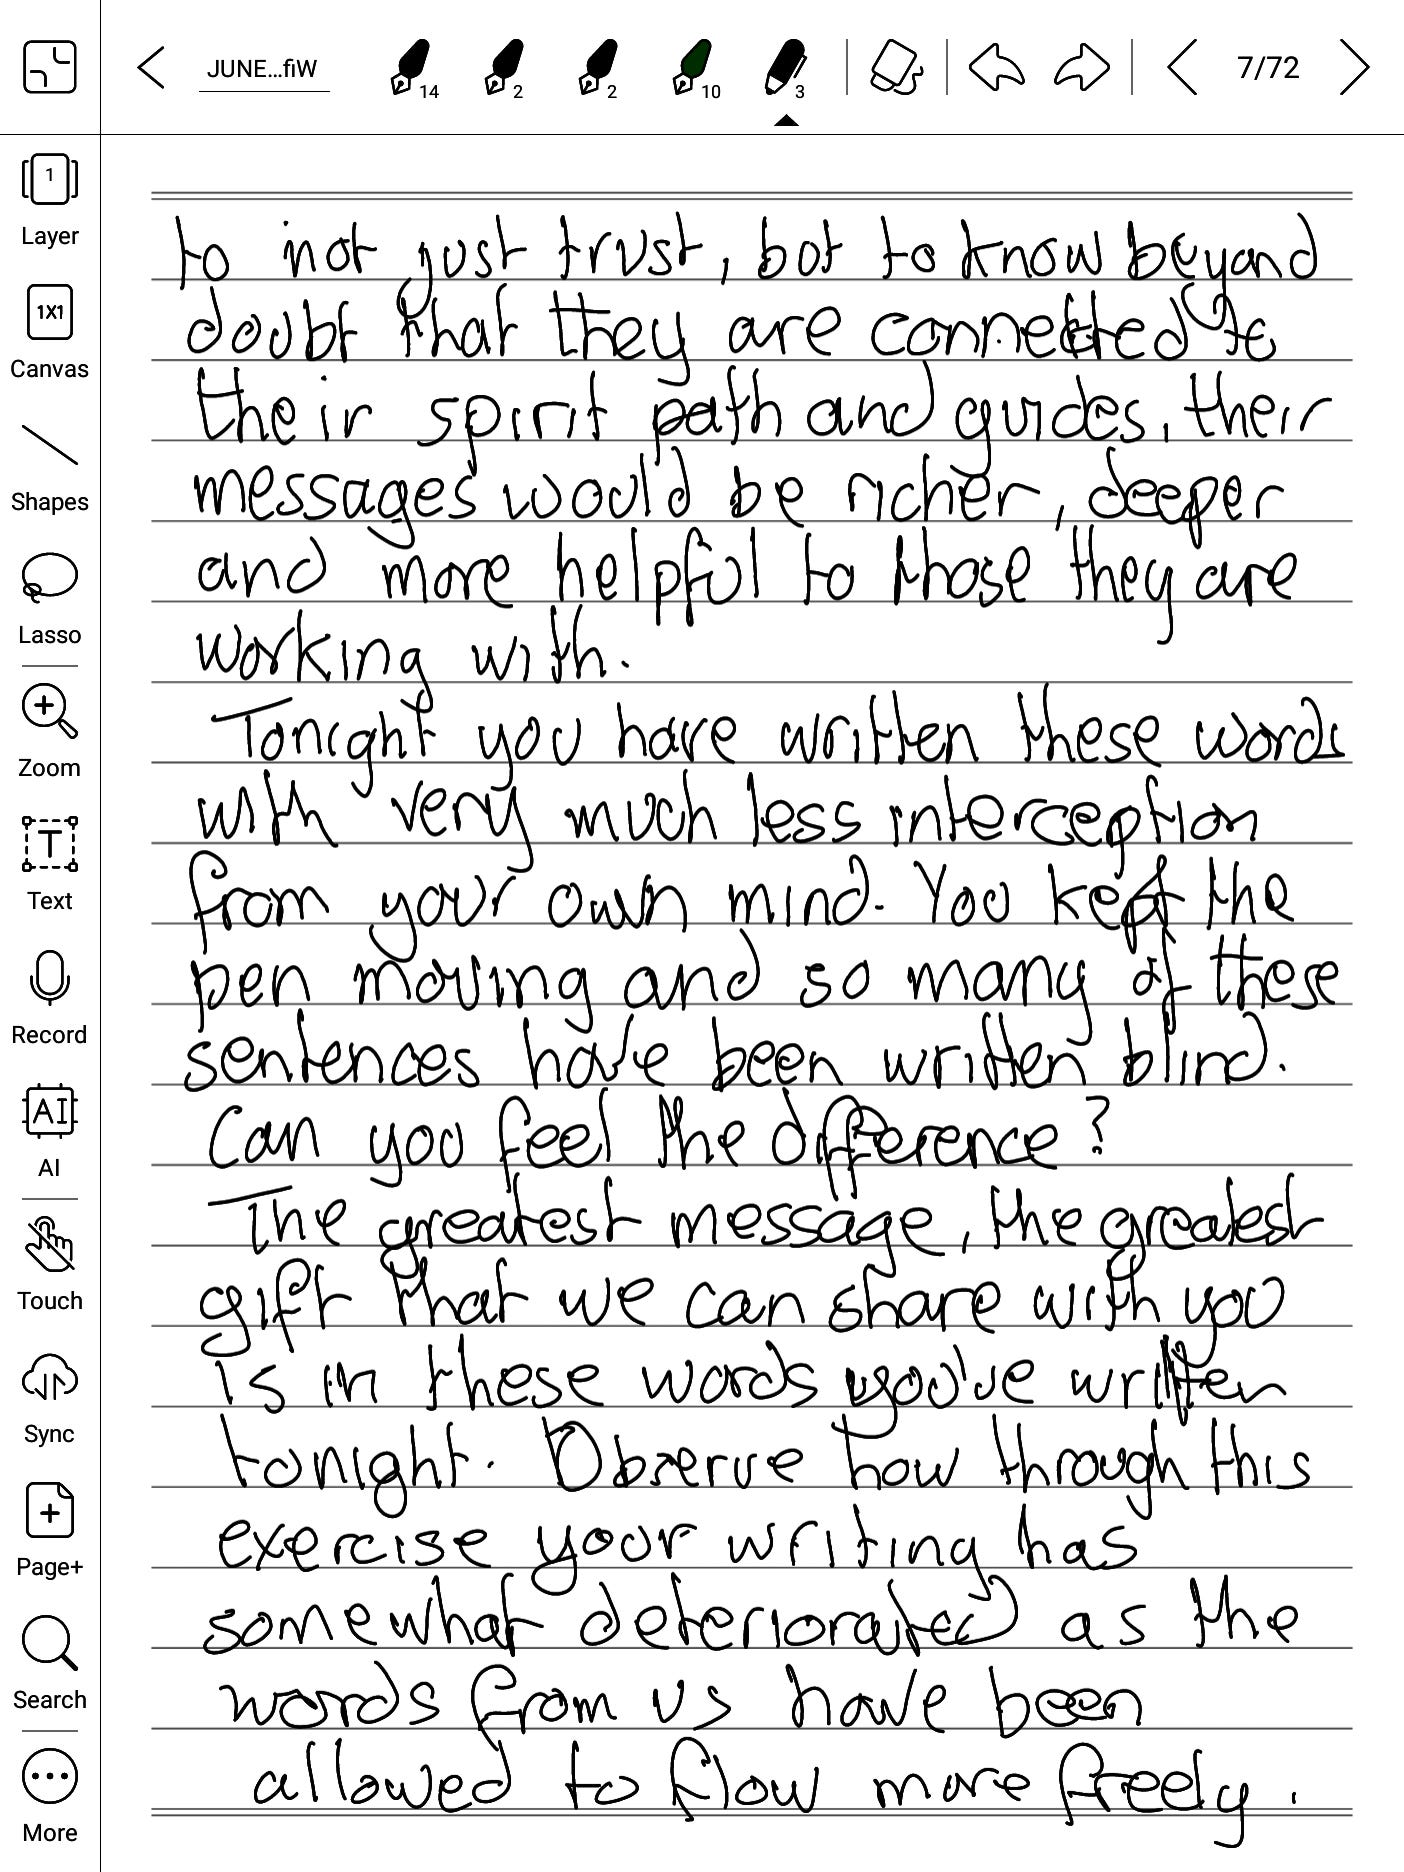 JUNE...fiW
14
2
2
10
3
7/72
1
Layer
1X1
Canvas
Shapes
Lasso
Zoom
T
Text
Record
AI
AI
Touch
Sync
Page+
Search
More
to not just trust, but to know beyond
doubt that they are connected to
their spirit path and guides, their
messages would be richer, deeper
and more helpful to those they are
working with.
Tonight you have written these words
with very much less interception
from your own mind. You kept the
pen moving and so many of these
sentences have been written blind.
Can you feel the difference?
The greatest message, the greatest
gift that we can share with you
is in these words you've written
tonight. Observe how through this
exercise your writing has
somewhat deteriorated as the
words from us have been
allowed to flow more freely.